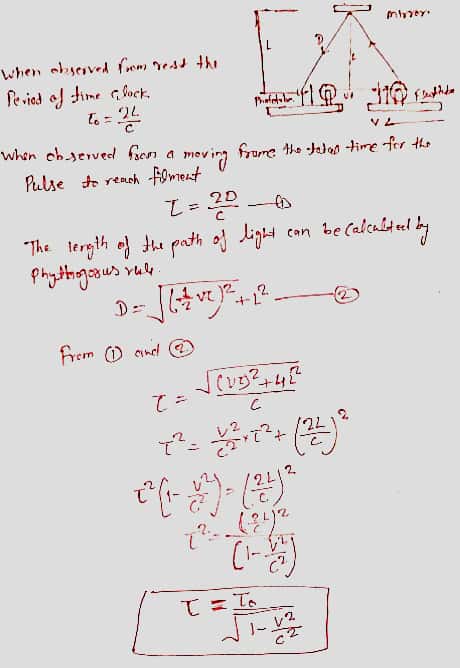 mirror.
L
D
L
when observed from rest the
Period of time Clock.
τ₀ = 2L/c
V τ
when observed from a moving frame the total time for the
Pulse to reach filment
τ = 2D/c —①
The length of the path of light can be calculated by
Phythogorus rule.
D = √((½ vτ)² + L²) —②
from ① and ②
τ = √((vτ)² + 4L²)/c
τ² = v²/c² × τ² + (2L/c)²
τ² (1 - v²/c²) = (2L/c)²
τ² = (2L/c)²/(1 - v²/c²)
τ = τ₀/√(1 - v²/c²)